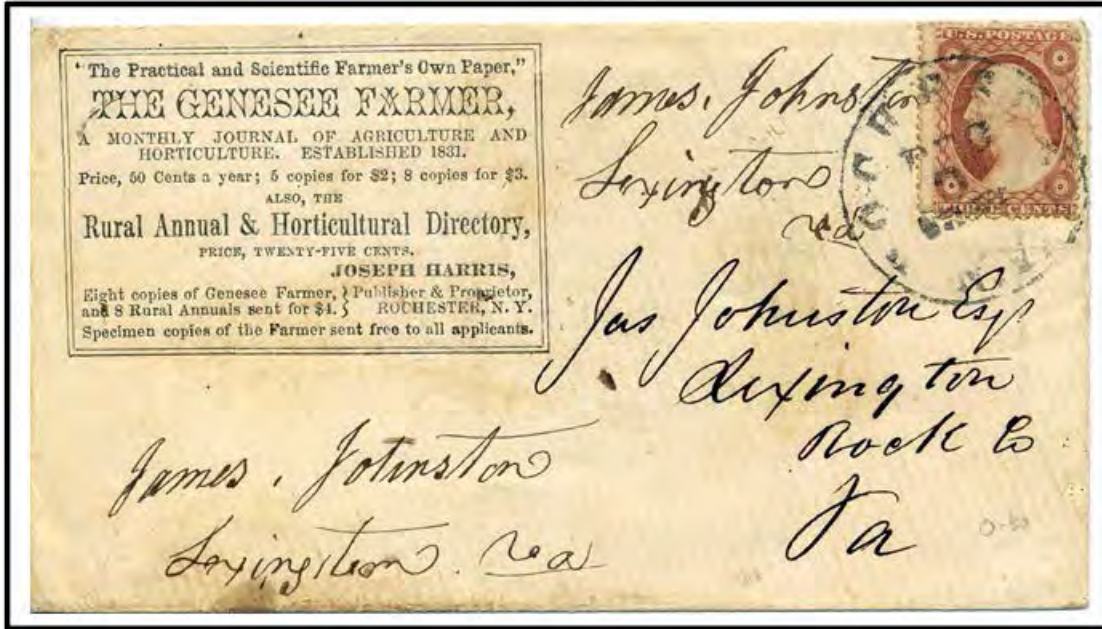 "The Practical and Scientific Farmer's Own Paper,"
THE GENESEE FARMER,
A MONTHLY JOURNAL OF AGRICULTURE AND
HORTICULTURE. ESTABLISHED 1831.
Price, 50 Cents a year; 5 copies for $2; 8 copies for $3.
ALSO, THE
Rural Annual & Horticultural Directory,
PRICE, TWENTY-FIVE CENTS.
JOSEPH HARRIS,
Eight copies of Genesee Farmer, } Publisher & Proprietor,
and 8 Rural Annuals sent for $4. } ROCHESTER, N. Y.
Specimen copies of the Farmer sent free to all applicants.
James. Johnston
Lexington
va
U.S. POSTAGE
THREE CENTS
Jas Johnston Esqr
Lexington
Rock Co
Va
James. Johnston
Lexington. va